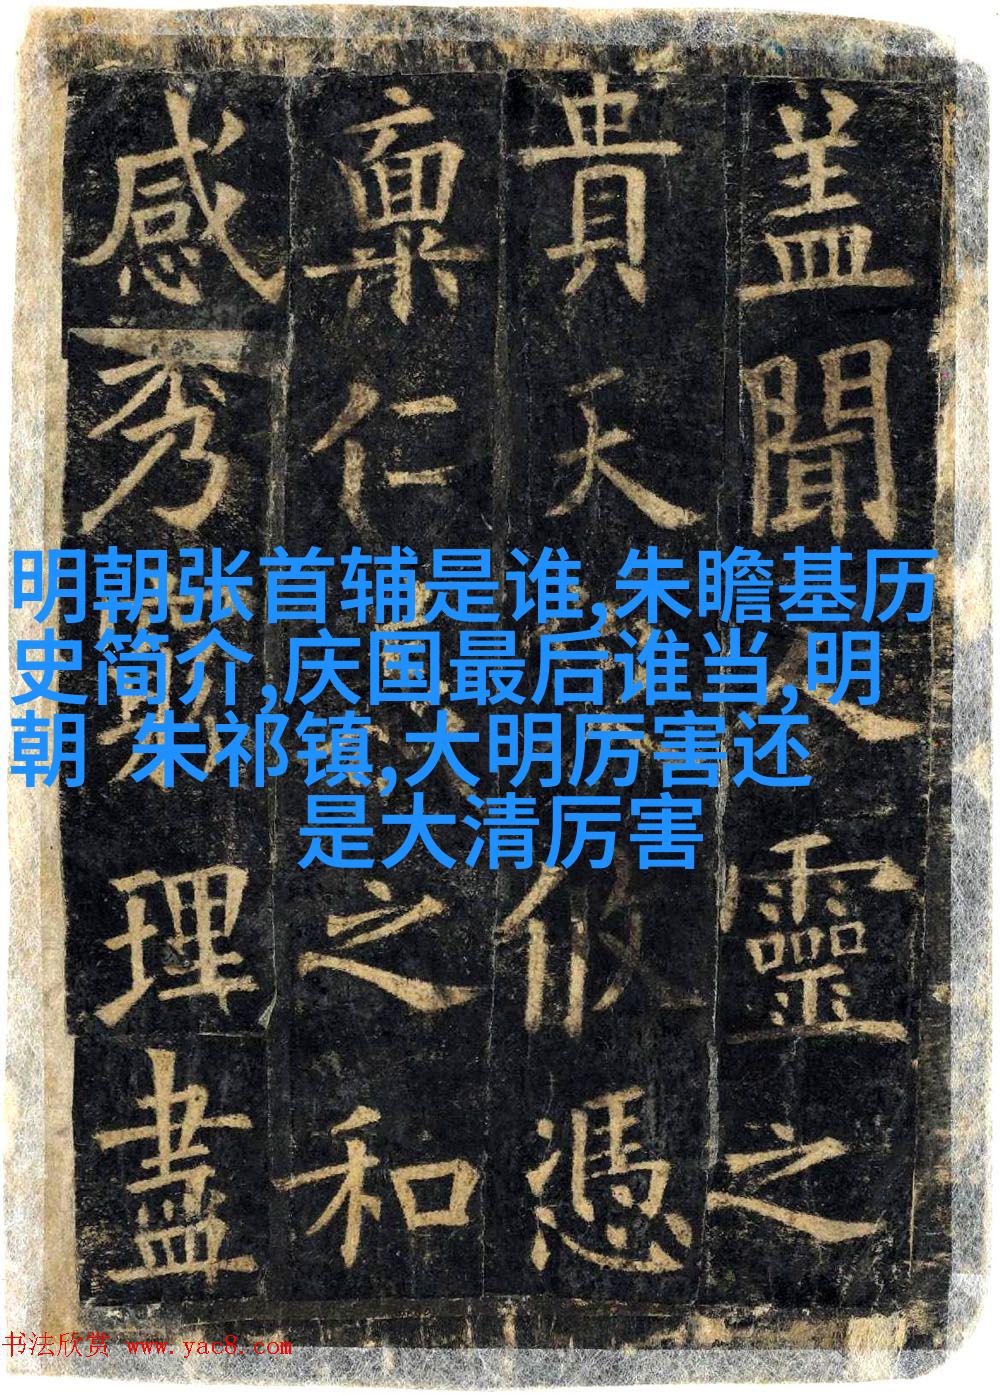 蓋聞 靈之
貴天 攸憑
稟仁 之和
感秀 理盡
明朝张首辅是谁,朱瞻基历
史简介,庆国最后谁当,明
朝 朱祁镇,大明厉害还
是大清厉害
书法欣赏 www.yac8.com